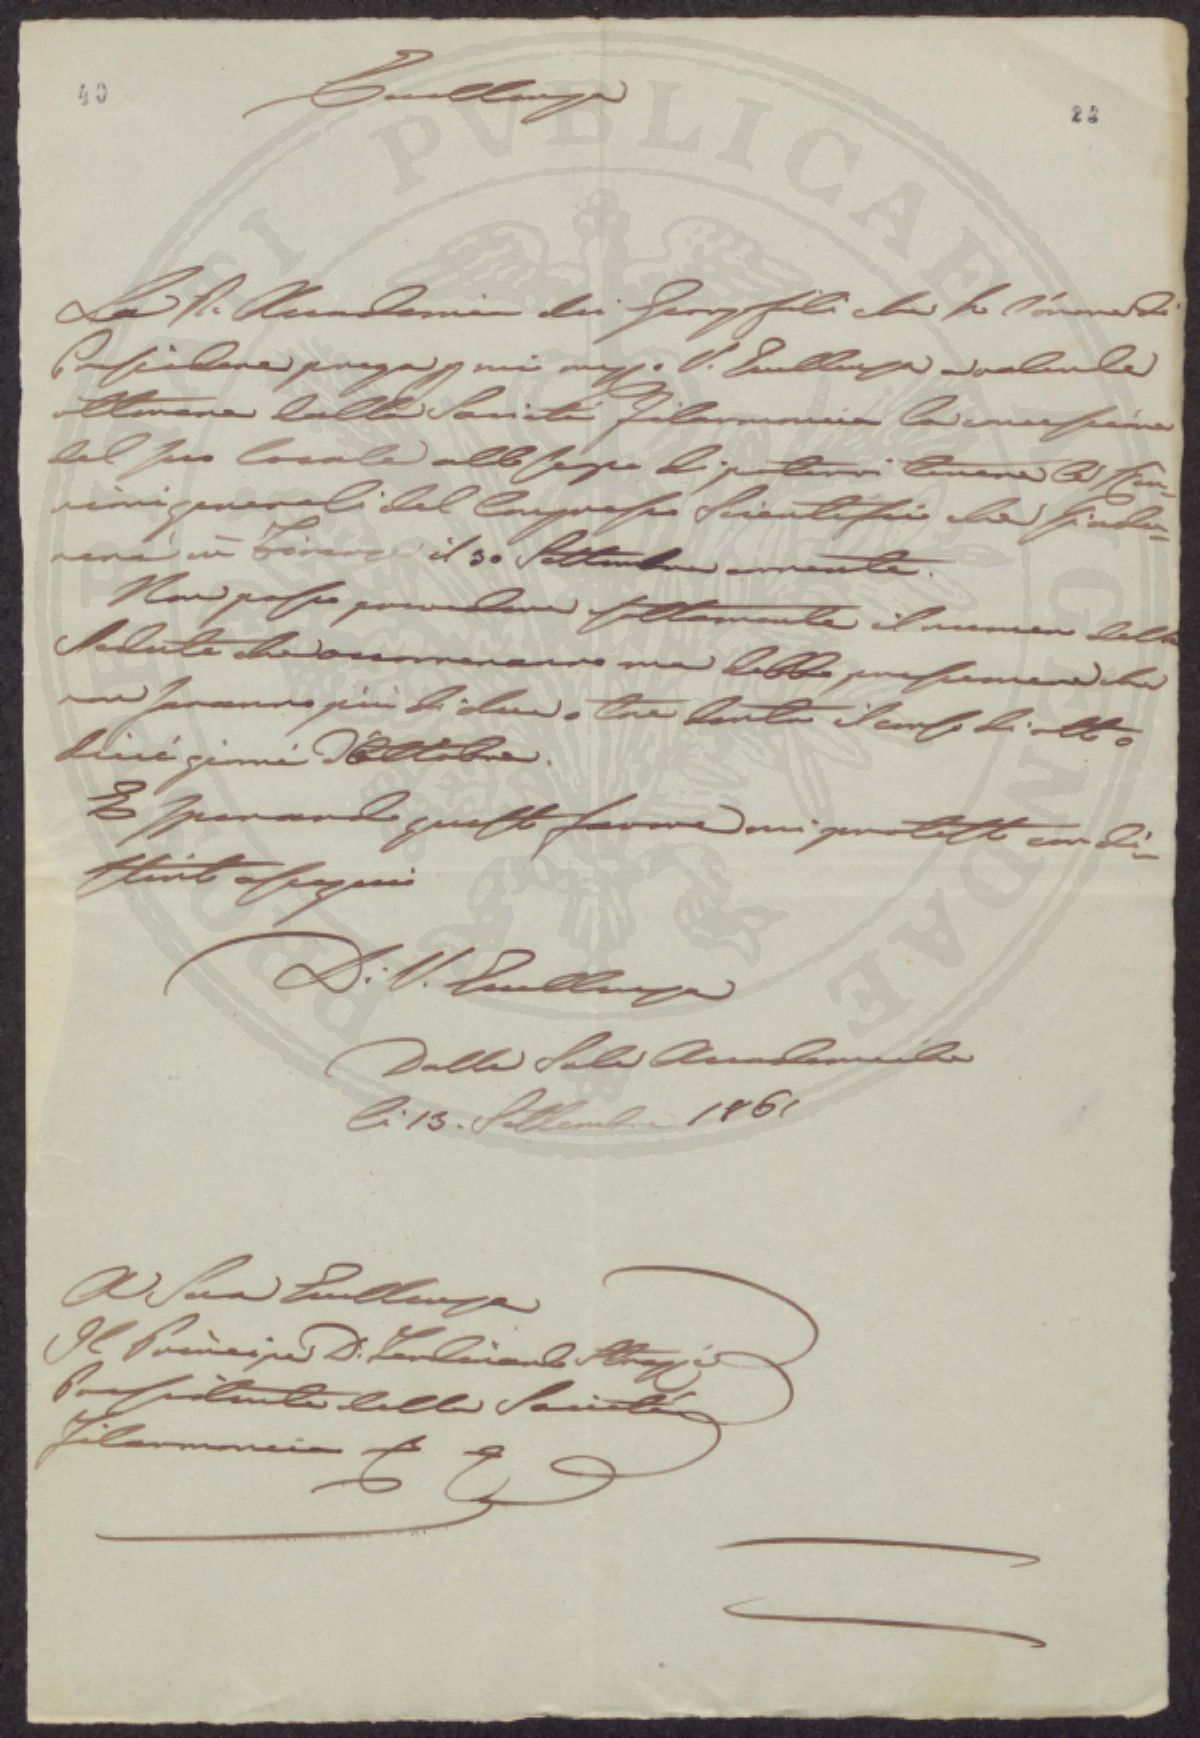 40
23
Eccellenza
La R. Accademia dei Georgofili che ho l'onore di
Presiedere prega p mio mezzo V. Eccellenza a volerle
ottenere dalla Società Filarmonica la concessione
del suo locale allo scopo di potervi tenere le Riu-
nioni generali del Congresso Scientifico che si adu-
nerà in Firenze il 30 Settembre corrente.
Non posso precedere esattamente il numero delle
Sedute che occorreranno ma debbo presumere che
non saranno più di due o tre dentro il corso di otto o
dieci giorni d'Ottobre.
E sperando questo favore mi protesto con di-
stinto ossequio
Di V. Eccellenza
Dalle Sale Accademiche
li 13. Settembre 1861
A Sua Eccellenza
Il Principe D. Ferdinando Strozzi
Presidente della Società
Filarmonica
PVBLICAE